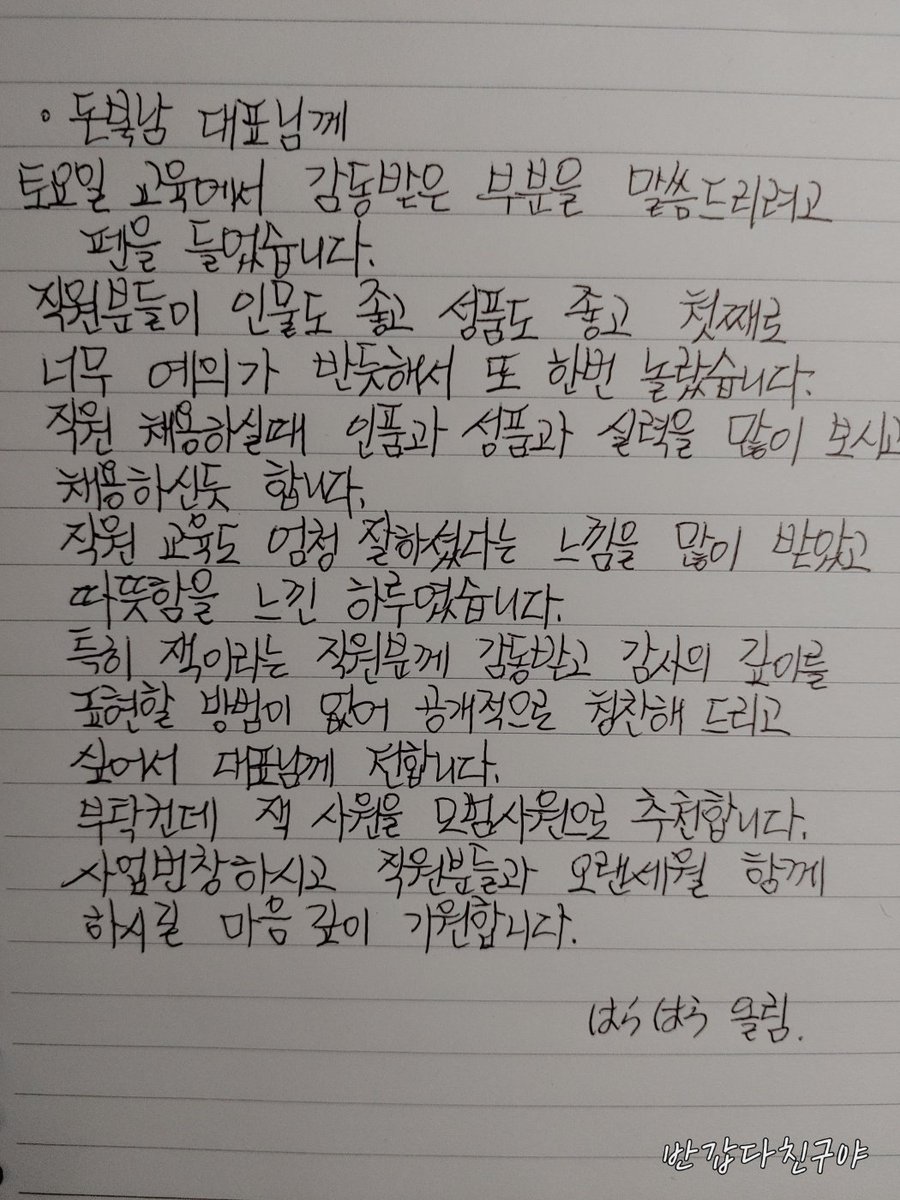 • 돈복남 대표님께
토요일 교육에서 감동받은 부분을 말씀드리려고
펜을 들었습니다.
직원분들이 인물도 좋고 성품도 좋고 첫째로
너무 예의가 반듯해서 또 한번 놀랐습니다.
직원 채용하실때 인품과 성품과 실력을 많이 보시고
채용하신듯 합니다.
직원 교육도 엄청 잘하셨다는 느낌을 많이 받았고
따뜻함을 느낀 하루였습니다.
특히 잭이라는 직원분께 감동받고 감사의 깊이를
표현할 방법이 없어 공개적으로 칭찬해 드리고
싶어서 대표님께 전합니다.
부탁컨데 잭 사원을 모범사원으로 추천합니다.
사업번창하시고 직원분들과 오랜세월 함께
하시길 마음 깊이 기원합니다.
はらはら 올림.
반갑다친구야